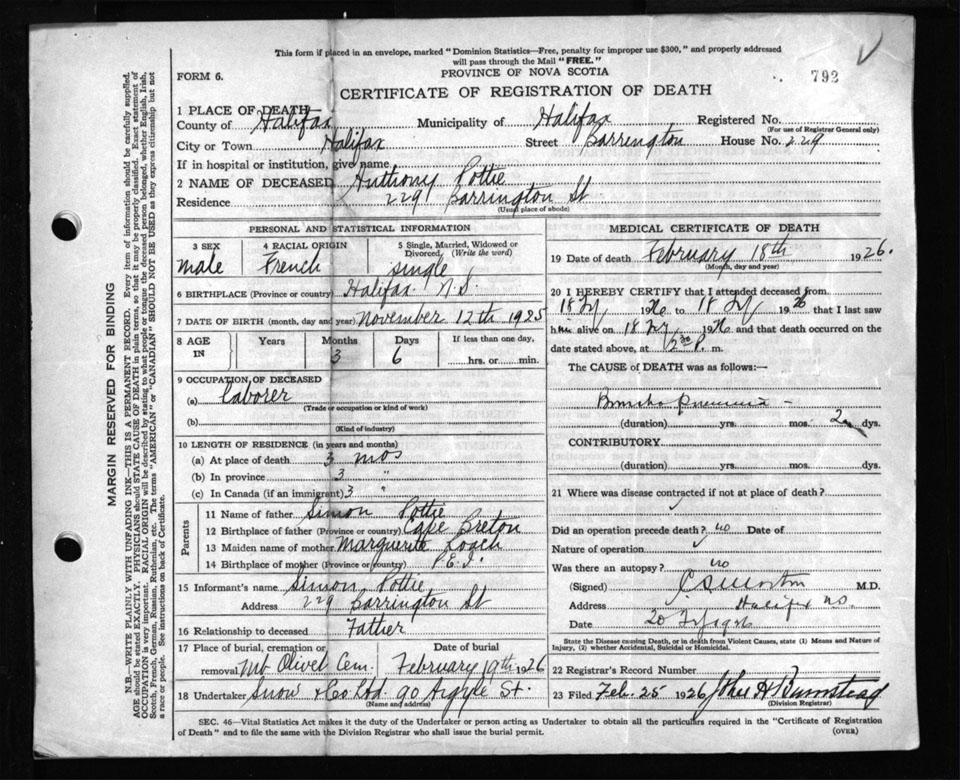 This form if placed in an envelope, marked "Dominion Statistics—Free, penalty for improper use $300," and properly addressed
will pass through the Mail "FREE."
FORM 6.
PROVINCE OF NOVA SCOTIA
792
CERTIFICATE OF REGISTRATION OF DEATH
1 PLACE OF DEATH—
County of Halifax Municipality of Halifax Registered No.
(For use of Registrar General only)
City or Town Halifax Street Barrington House No. 229
If in hospital or institution, give name
2 NAME OF DECEASED Anthony Pottie
Residence 229 Barrington St
(Usual place of abode)
PERSONAL AND STATISTICAL INFORMATION
3 SEX 4 RACIAL ORIGIN 5 Single, Married, Widowed or
Divorced. (Write the word)
male French single
6 BIRTHPLACE (Province or country) Halifax N.S.
7 DATE OF BIRTH (month, day and year) November 12th 1925
8 AGE IN Years Months Days If less than one day,
3 6 hrs. or min.
9 OCCUPATION OF DECEASED
(a) laborer
(Trade or occupation or kind of work)
(b)
(Kind of industry)
10 LENGTH OF RESIDENCE (in years and months)
(a) At place of death 3 mos
(b) In province 3 "
(c) In Canada (if an immigrant) 3 "
Parents
11 Name of father Simon Pottie
12 Birthplace of father (Province or country) Cape Breton
13 Maiden name of mother Marguerite Roach
14 Birthplace of mother (Province or country) P.E.I.
15 Informant's name Simon Pottie
Address 229 Barrington St
16 Relationship to deceased Father
17 Place of burial, cremation or removal Date of burial
Mt Olivet Cem. February 19th 1926
18 Undertaker Snow & Co Ltd. 90 Argyle St.
(Name and address)
MEDICAL CERTIFICATE OF DEATH
19 Date of death February 18th 1926.
(Month, day and year)
20 I HEREBY CERTIFY that I attended deceased from
18 1926 to 18 1926 that I last saw
him alive on 18 1926 and that death occurred on the
date stated above, at P. m.
The CAUSE of DEATH was as follows:—
Broncho Pneumonia —
(duration) yrs. mos. 2 dys.
CONTRIBUTORY
(duration) yrs. mos. dys.
21 Where was disease contracted if not at place of death?
Did an operation precede death? no Date of
Nature of operation
Was there an autopsy? no
(Signed) M.D.
Address Halifax NS.
Date 20
State the Disease causing Death, or in death from Violent Causes, state (1) Means and Nature of
Injury, (2) whether Accidental, Suicidal or Homicidal.
22 Registrar's Record Number
23 Filed Feb. 25 1926 John H Bumstead
(Division Registrar)
SEC. 46—Vital Statistics Act makes it the duty of the Undertaker or person acting as Undertaker to obtain all the particulars required in the "Certificate of Registration
of Death" and to file the same with the Division Registrar who shall issue the burial permit.
(OVER)
MARGIN RESERVED FOR BINDING
N.B.—WRITE PLAINLY WITH UNFADING INK—THIS IS A PERMANENT RECORD. Every item of information should be carefully supplied.
AGE should be stated EXACTLY. PHYSICIANS should STATE CAUSE OF DEATH in plain terms, so that it may be properly classified. Exact statement of
OCCUPATION is very important. RACIAL ORIGIN will be described by stating to what people or tongue the deceased person belonged, whether English, Irish,
Scotch, French, German, Russian, Ruthenian, etc. The terms "AMERICAN" or "CANADIAN" SHOULD NOT BE USED as they express citizenship but not
a race or people. See instructions on back of Certificate.